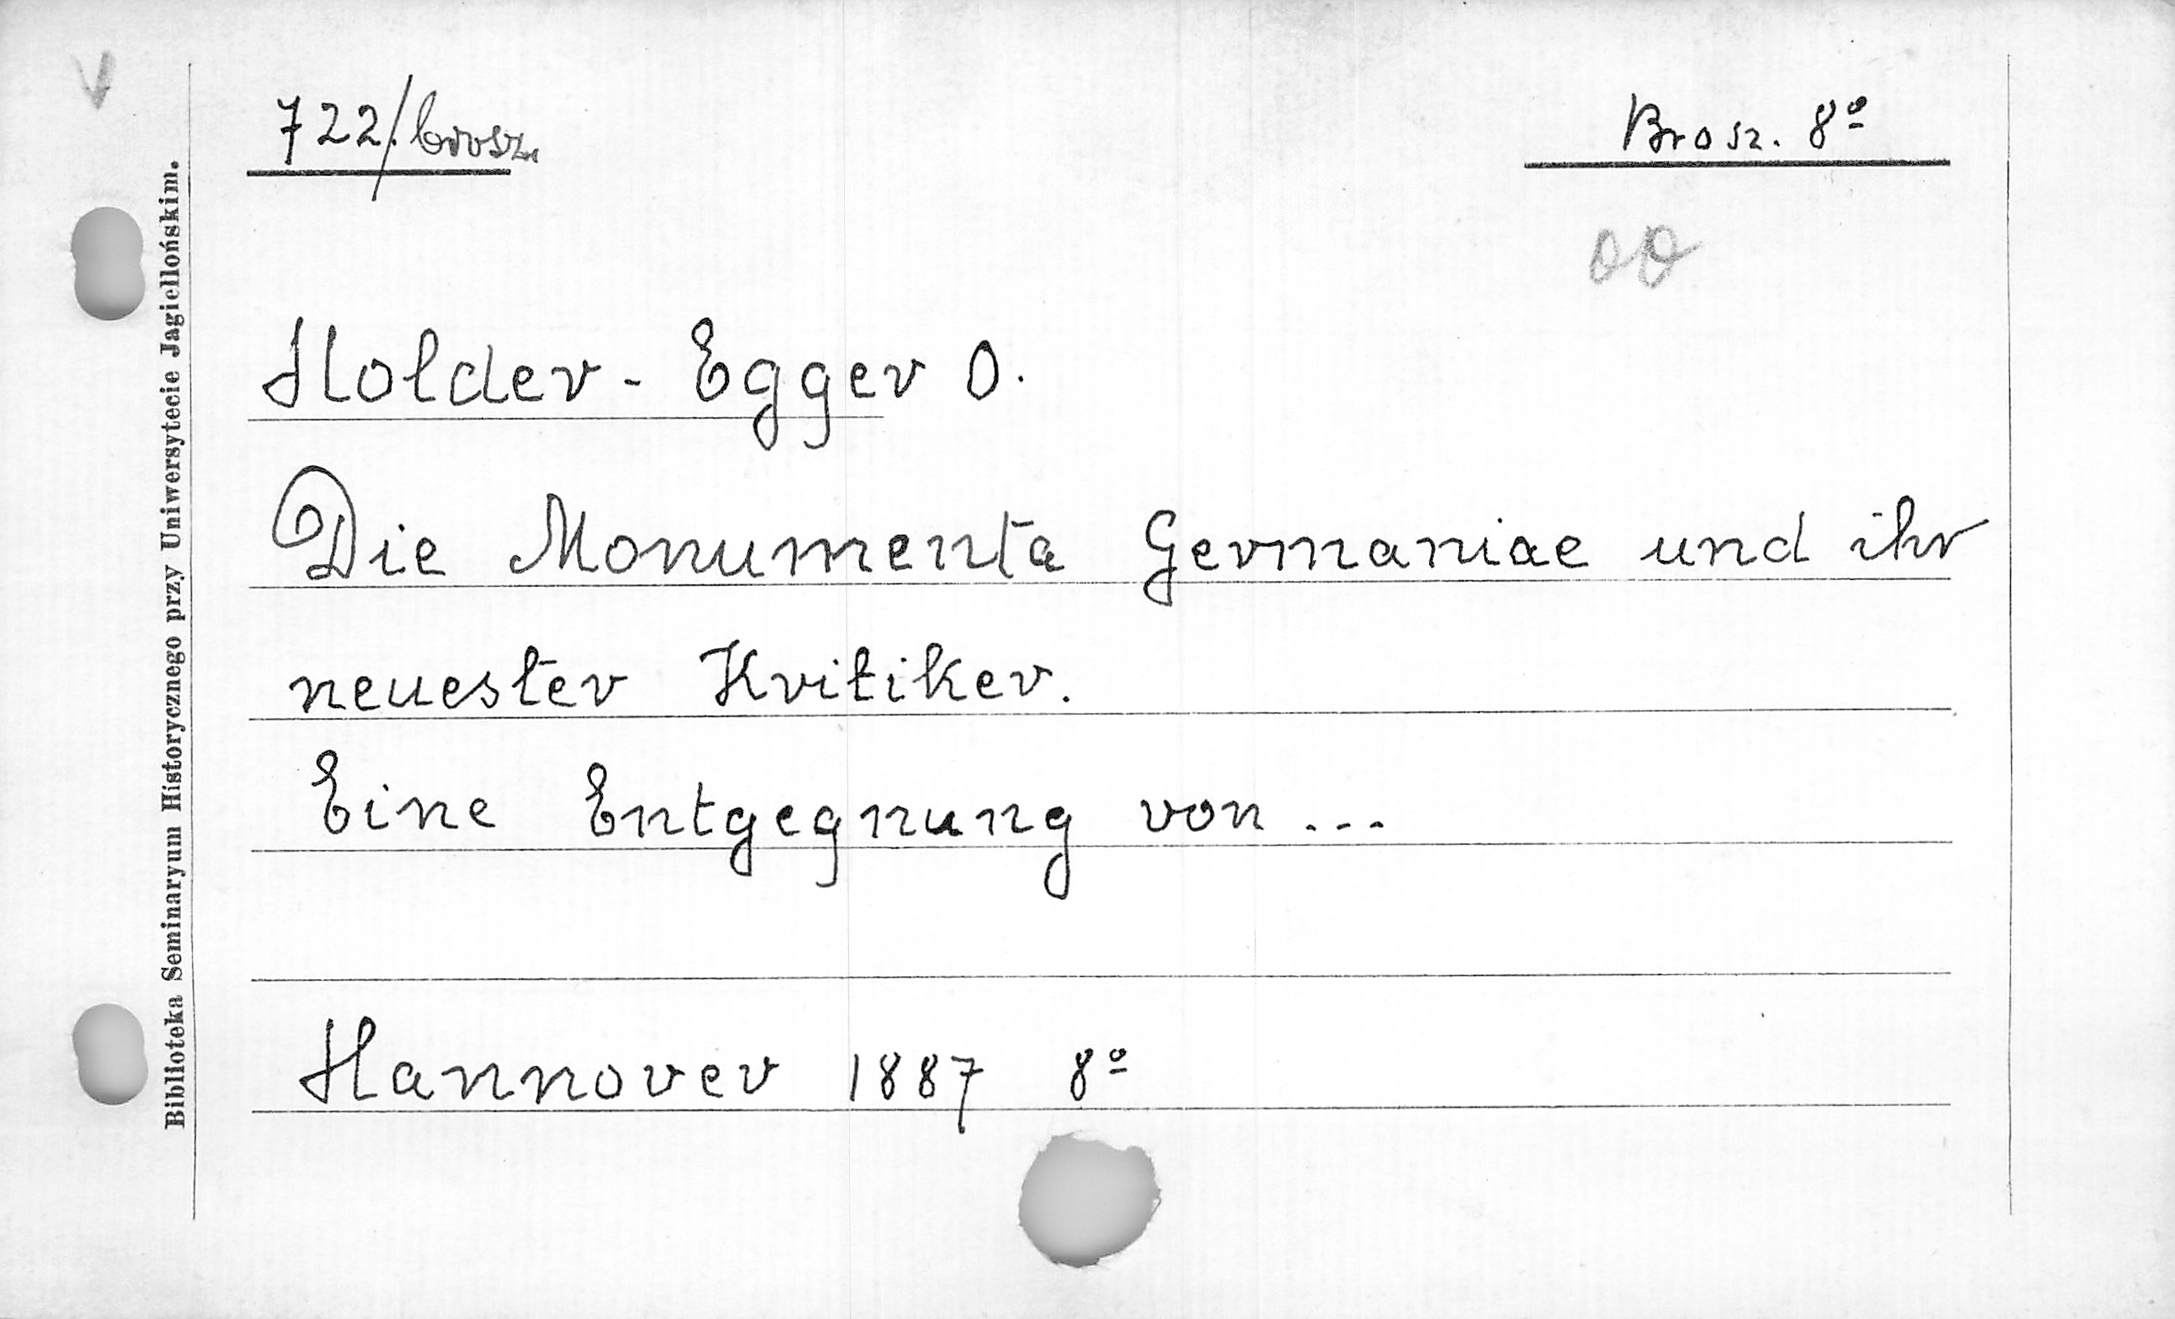 V
722/brosz.
Brosz. 8º
Holder-Egger O.
Die Monumenta Germaniae und ihr
neuester Kritiker.
Eine Entgegnung von ...
Hannover 1887 8º
Biblioteka Seminaryum Historycznego przy Uniwersytecie Jagiellońskim.